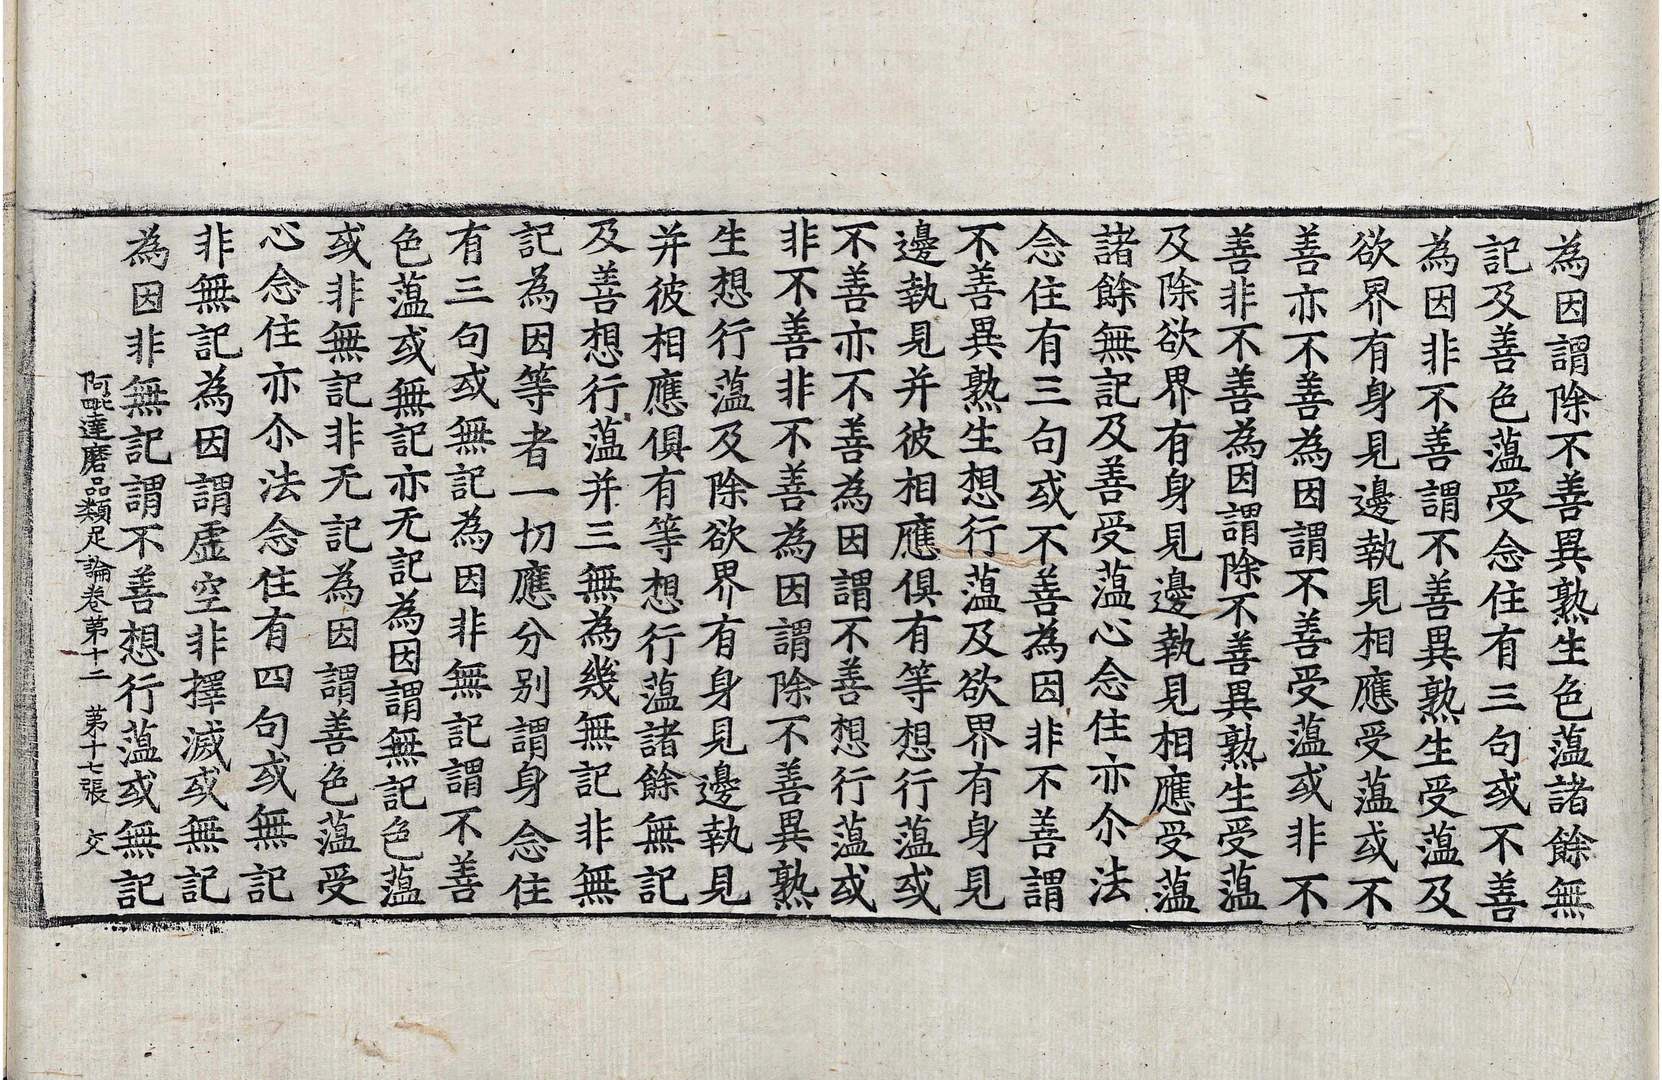 為因謂除不善異熟生色蕰諸餘無
記及善色蕰受念住有三句或不善
為因非不善謂不善異熟生受蕰及
欲界有身見邊執見相應受蕰或不
善亦不善為因謂不善受蕰或非不
善非不善為因謂除不善異熟生受蕰
及除欲界有身見邊執見相應受蕰
諸餘無記及善受蕰心念住亦尒法
念住有三句或不善為因非不善謂
不善異熟生想行蕰及欲界有身見
邊執見并彼相應俱有等想行蕰或
不善亦不善為因謂不善想行蕰或
非不善非不善為因謂除不善異熟
生想行蕰及除欲界有身見邊執見
并彼相應俱有等想行蕰諸餘無記
及善想行蕰并三無為幾無記非無
記為因等者一切應分別謂身念住
有三句或無記為因非無記謂不善
色蕰或無記亦无記為因謂無記色蕰
或非無記非无記為因謂善色蕰受
心念住亦尒法念住有四句或無記
非無記為因謂虛空非擇滅或無記
為因非無記謂不善想行蕰或無記
阿毗達磨品類足論卷第十二 第十七張 交